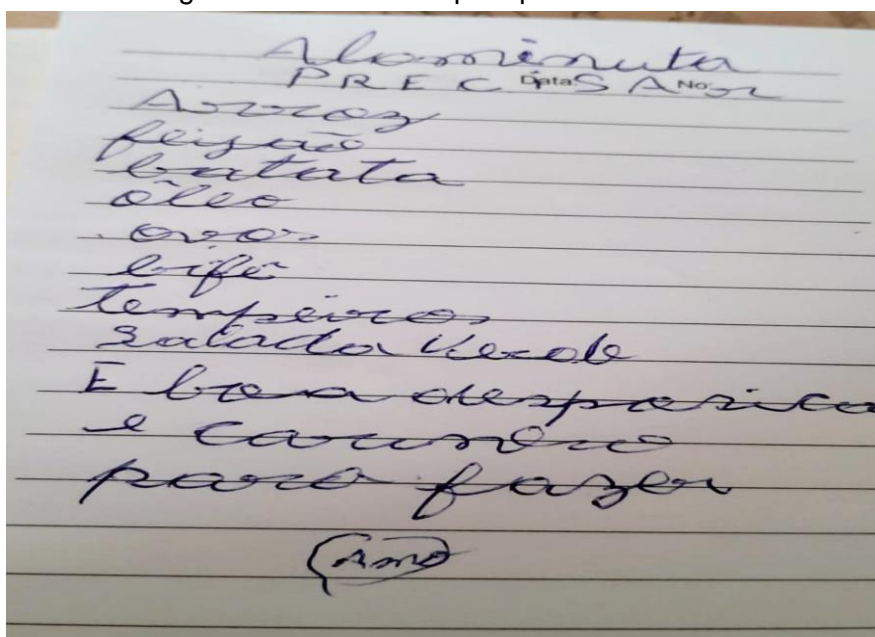 Alominuta
PRECISAR
Data No
Arroz
feijão
batata
óleo
ovos
bife
temperos
Salada Verde
E boa desposica
e carinho
para fazer
Amo